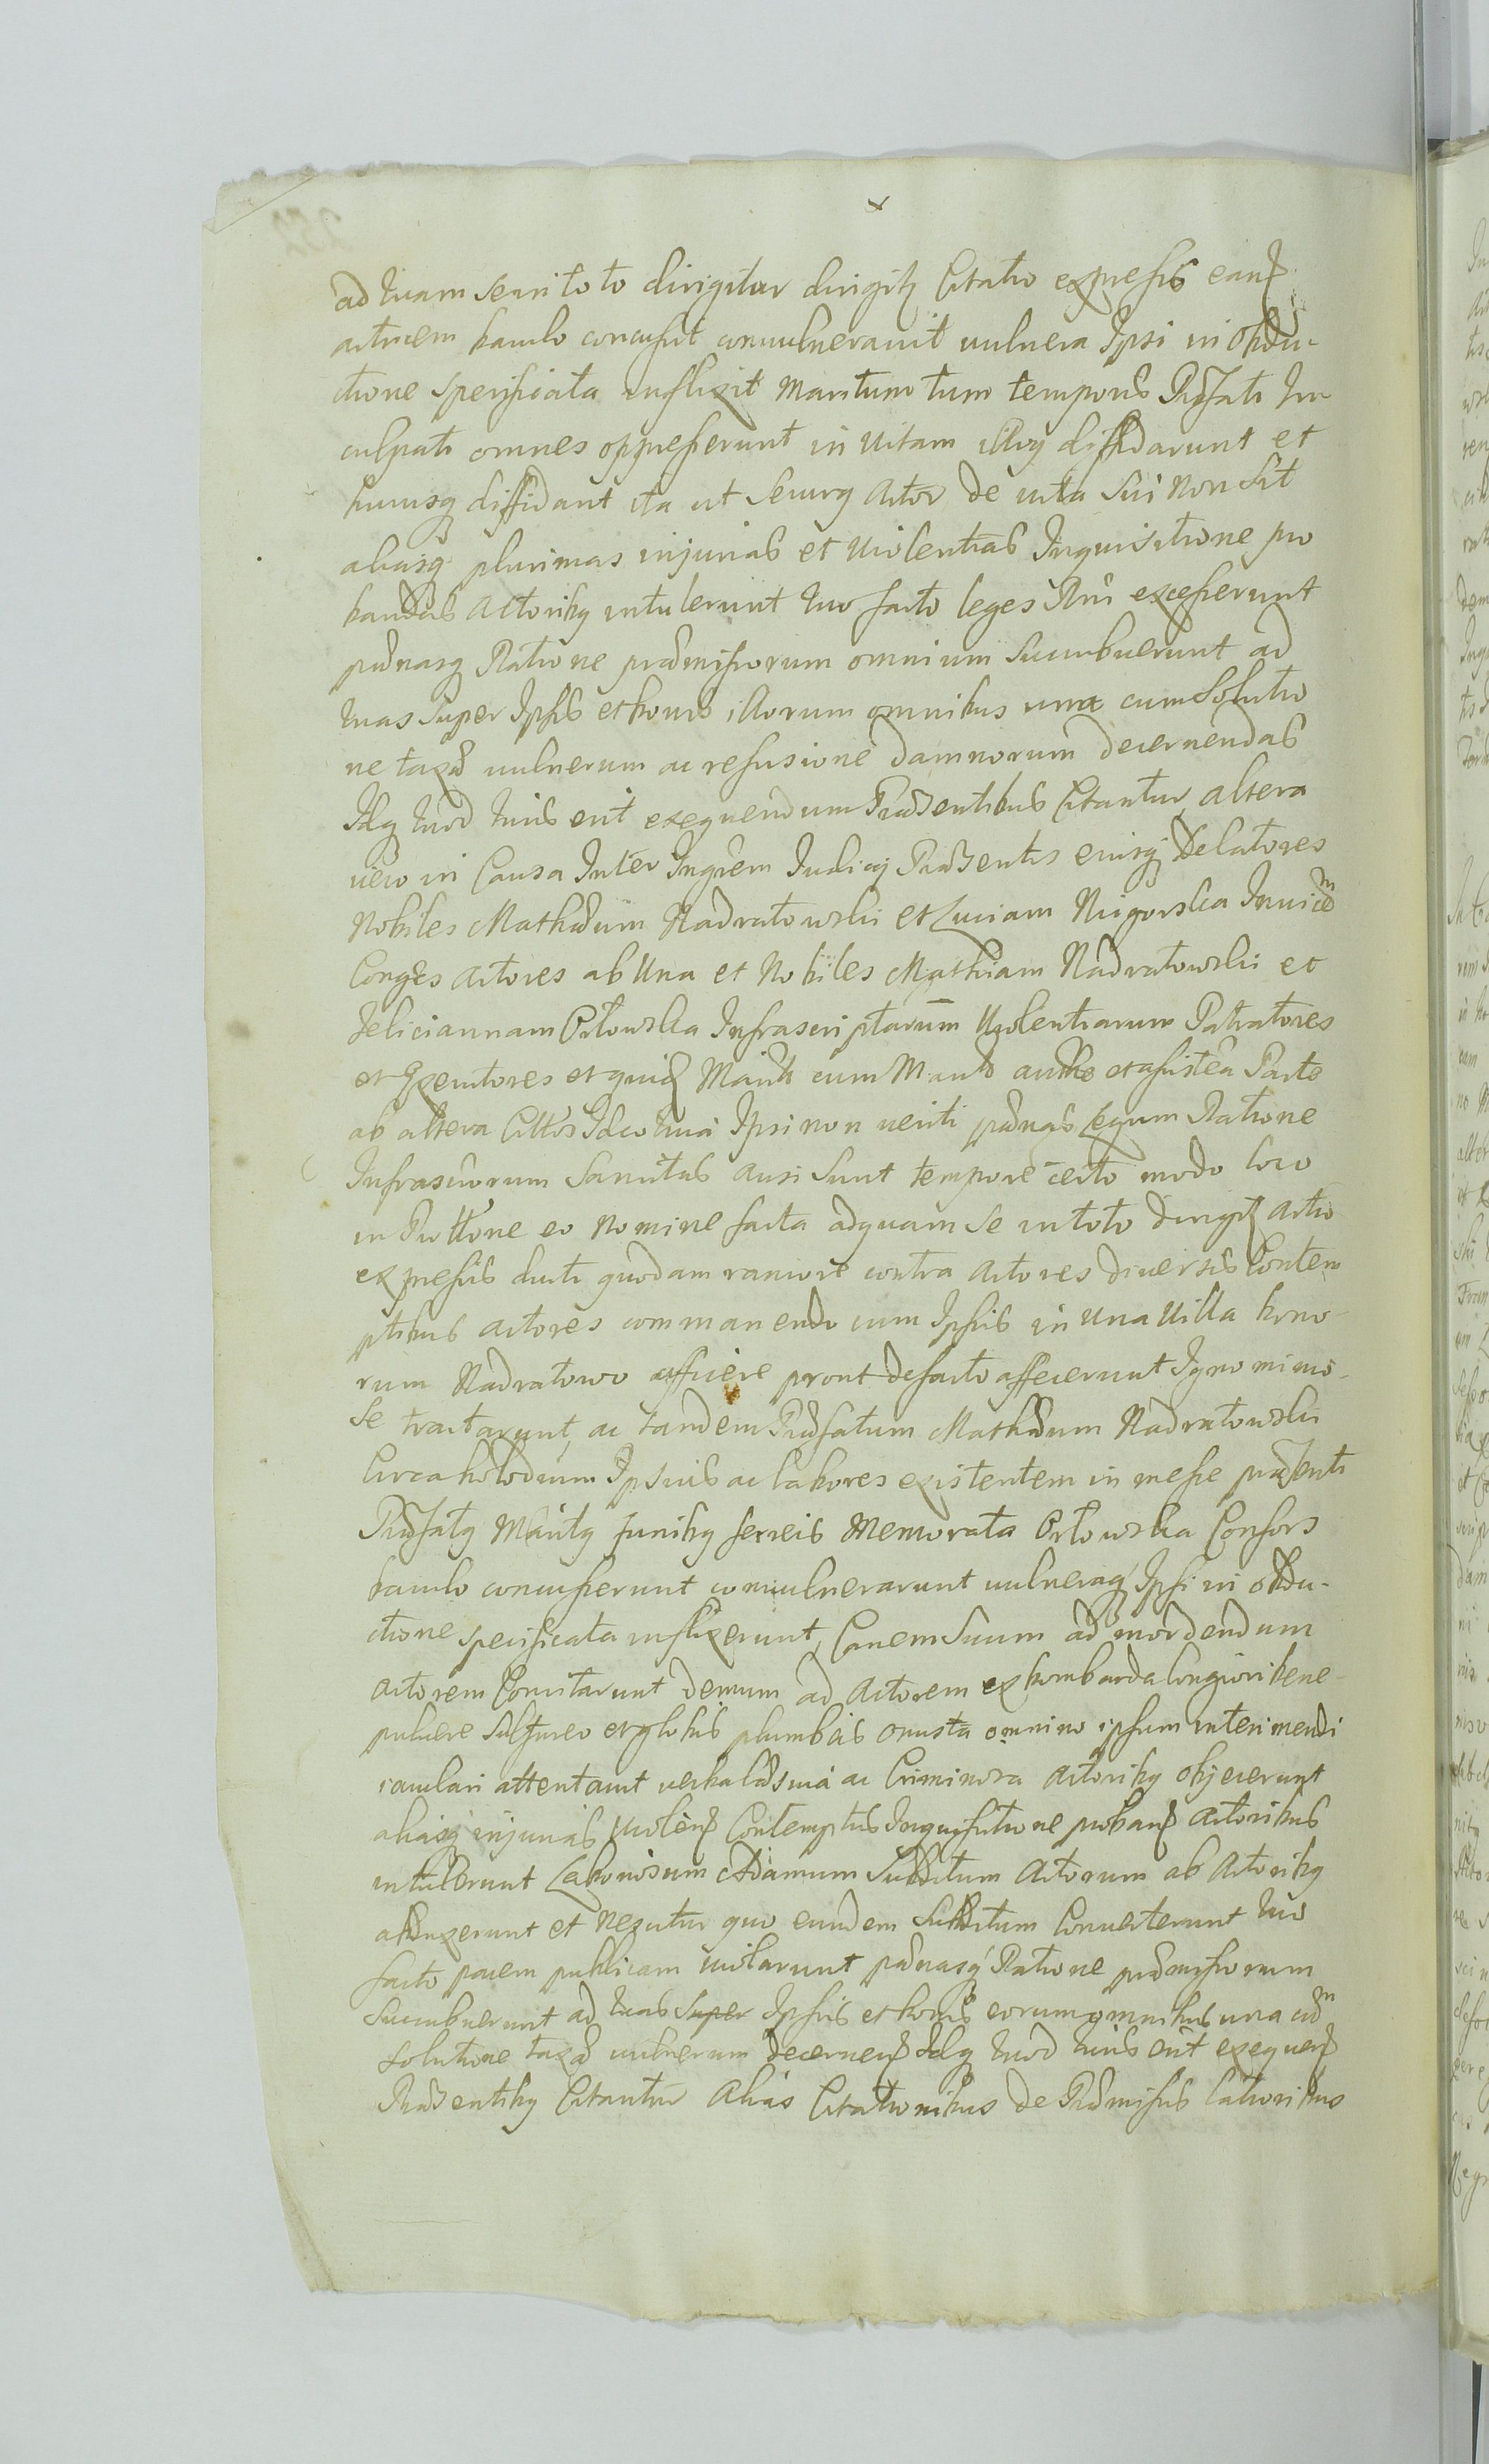 ad quam se in toto dirigitur dirigitz Citatio expressis eand
actricem baculo concussit convulneravit vulnera Ipsi in obdu-
ctione specificata inflixit Maritum tum temporis Præfati In
culpati omnes oppresserunt in vitam illiq diffidarunt et
hucusq diffidant ita ut securq Actor de vita sui non sit
aliasq plurimas injurias et violentias Inquisitione pro
bandas Actoribq intulerunt quo facto leges Rni excesserunt
pænasq Ratione præmissorum omnium succubuerunt ad
quas super Ipsis et bonis illorum omnibus una cum Solutio
ne taxæ vulnerum ac refusione damnorum decernendas
Idq quod Juris erit exequendum Præsentibus Citantur, altera
vero in Causa Inter Ingrem Judicij Præsentis eiusq Delatores
Nobiles Mathæum Nadratowski et Luciam Nigorska Invicem
Conges Actores ab Una et Nobiles Mathiam Nadratowski et
Feliciannam Orłowska Infrascriptarum Violentiarum Patratores
et Exeutores et quid Marita cum Marito authe et assistea Parte
ab altera Cittos Ideo quia Ipsi non veriti pænas Legum Ratione
Infrascriorum Sancitas ausi sunt tempore certo modo loco
in Prottone eo nomine facta ad quam se in toto dirigitz Actio
expressis ducti quodam rancore contra Actores diversis Contem
ptibus Actores commanendo cum Ipsis in una Villa bono-
rum Nadratowo afficere prout de facto affecerunt Ignominio-
se tractarunt, ac tandem Præfatum Mathæum Nadratowski
Circa holodium Ipsius ac labores existentem in messe præsenti
Præfatq Maritq funibq ferreis Memorata Orłowska Consors
baculo concusserunt convulnerarunt vulneraq Ipsi in obdu-
ctione specificata inflixerunt, Canem Suum ad mordendum
Actorem Concitarunt demum ad Actorem ex bombarda longiori bene-
pulvere sulfureo et globis plumbeis onusta omnino ipsum interimendi
iaculari attentavit verbalissima ac Criminosa Actoribq objecerunt
aliasq injurias Violend Contemptus Inquisitione proband Actoribus
intulerunt Laboriosum Adamum Subditum Actorum ab Actoribq
abduxerunt et nescitur quo eundem Subditum Converterunt quo
facto pacem publicam violarunt pænasq Ratione præmissorum
succubuerunt ad quas super Ipsis et bonis eorum omnibus una cum
solutione taxæ vulnerum decernend Idq quod Juris erit exequend
Præsentibq Citantur Alias Citationibus de Præmissis latioribus